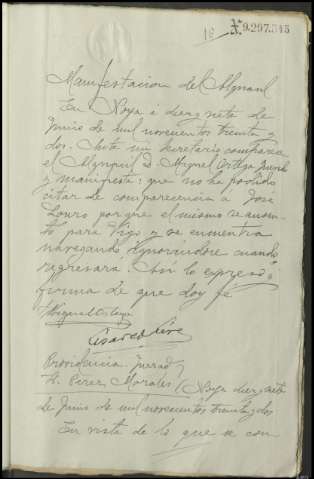 N.9.297.345
Manifestacion del Alguacil
En Noya a diez y siete de
Junio de mil novecientos treinta y
dos; Ante mi Secretario comparece
el Alguacil D. Miguel Ortega
y manifiesta: que no ha podido
citar de comparecencia a José
Louro porque el mismo se ausen-
tó para Vigo y se encuentra
navegando, ignorándose cuando
regresará. Así lo expresó y
firma de que doy fé
Miguel Ortega
Providencia Juez
Sr. Perez Morales / Noya diez y siete
de Junio de mil novecientos treinta y dos
En vista de lo que se con